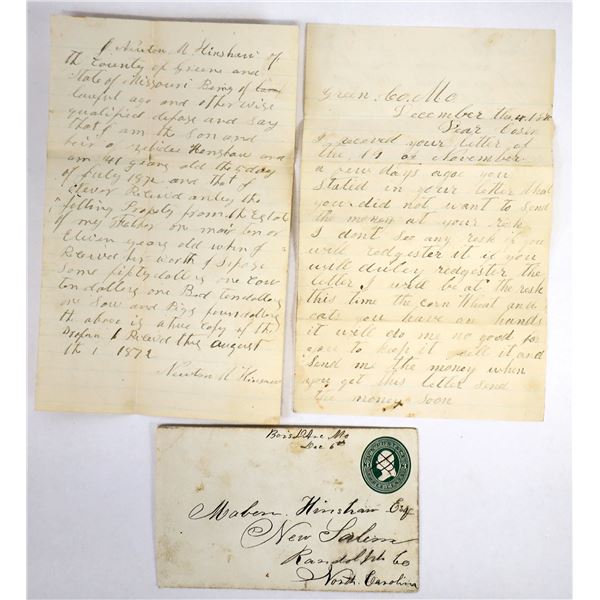 I Newton M Hinshaw of
th County of Greene and
State of Missouri Being of
lawful age and otherwise
qualified depose and say
that I am the son and
heir of Zebidee Henshaw and
am 41 years old the day
of July 1872 and that I
Never Recievd anley the
folling Propety from the Estat
of my Father one mair ten or
Eleven years old when I
Recievd hir worth I Supose
Some fifty dollers one Cow
ten dollers one Bed ten dollers
one Sow and Pigs four dollers
the above is a true Copy of the
I Recievd this august
th 1 1872
Newton M Hinshaw
Green Co. Mo.
December the 4. 18
Dear Cosin
I receved your letter of
the 19 of November
a few days agoe you
Stated in your letter that
you did not want to Send
the money at your resk
I dont See any resk if you
will redgester it if you
will duley redgester the
letter I will be at the resk
this time the corn Wheat and
oats you have on hands
it will do me no good for
you to keep it sell it and
Send me the money when
you get this letter Send
the money soon
Bois D'Arc Mo
Dec 6th
Maben Hinshaw Esq
New Salem
Randolph Co
North Carolina